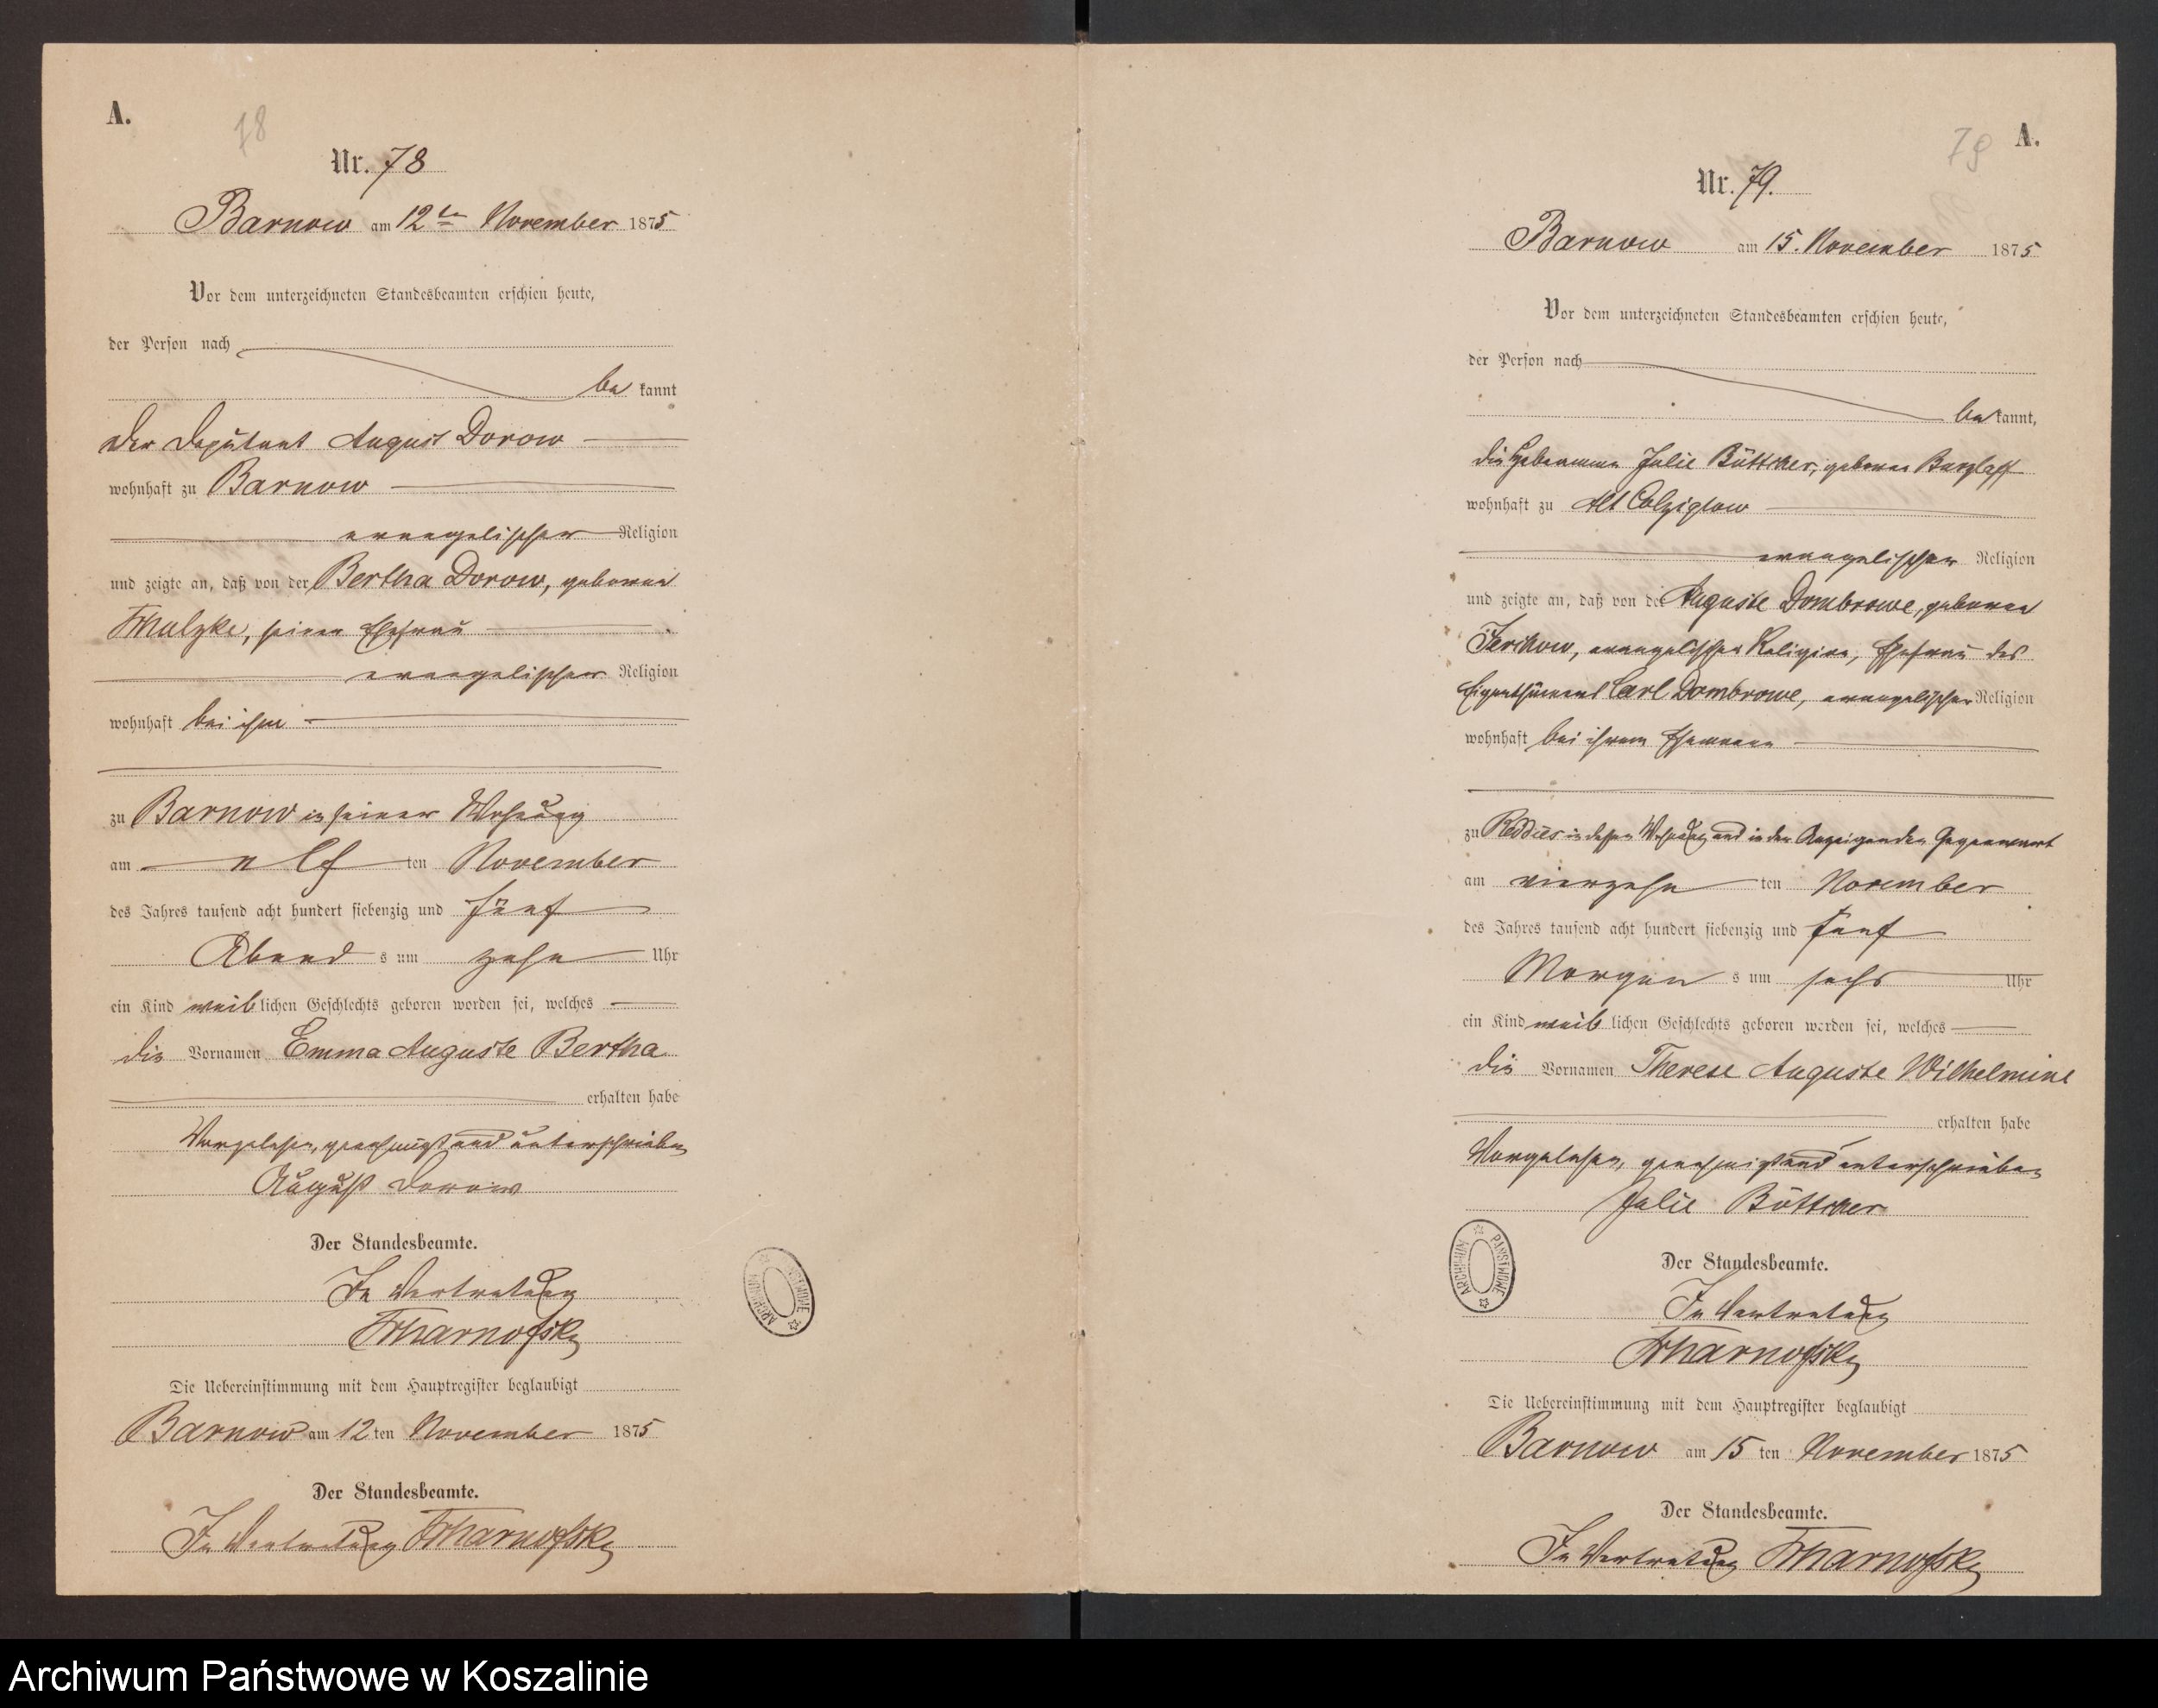 A.
78
Nr. 78
Barnow am 12ten November 1875
Vor dem unterzeichneten Standesbeamten erschien heute,
der Person nach
be kannt
der Deputant August Dorow
wohnhaft zu Barnow
evangelischer Religion
und zeigte an, daß von der Bertha Dorow, geborne
seiner Ehefrau
evangelischer Religion
wohnhaft bei ihm
zu Barnow in seiner Wohnung
am elf ten November
des Jahres tausend acht hundert siebenzig und fünf
Abend s um zehn Uhr
ein Kind weib lichen Geschlechts geboren worden sei, welches
die Vornamen Emma Auguste Bertha
erhalten habe
Vorgelesen, genehmigt und unterschrieben
August Dorow
Der Standesbeamte.
In Vertretung
Die Uebereinstimmung mit dem Hauptregister beglaubigt
Barnow am 12 ten November 1875
Der Standesbeamte.
In Vertretung
79
A.
Nr. 79.
Barnow am 15. November 1875
Vor dem unterzeichneten Standesbeamten erschien heute,
der Person nach
be kannt,
die Hebamme Julie Böttcher, geborne Barzlaff
wohnhaft zu Alt Colziglow
evangelischer Religion
und zeigte an, daß von der Auguste Dombrowe, geborne
Jerchow, evangelischer Religion, Ehefrau des
Eigenthümers Carl Dombrowe, evangelischer Religion
wohnhaft bei ihrem Ehemann
zu Reddies in dessen Wohnung und in der Anzeigenden Gegenwart
am vierzehn ten November
des Jahres tausend acht hundert siebenzig und fünf
Morgen s um sechs Uhr
ein Kind weib lichen Geschlechts geboren worden sei, welches
die Vornamen Therese Auguste Wilhelmine
erhalten habe
Vorgelesen, genehmigt und unterschrieben
Julie Böttcher
ARCHIWUM PAŃSTWOWE
Der Standesbeamte.
In Vertretung
Die Uebereinstimmung mit dem Hauptregister beglaubigt
Barnow am 15 ten November 1875
Der Standesbeamte.
In Vertretung
Archiwum Państwowe w Koszalinie